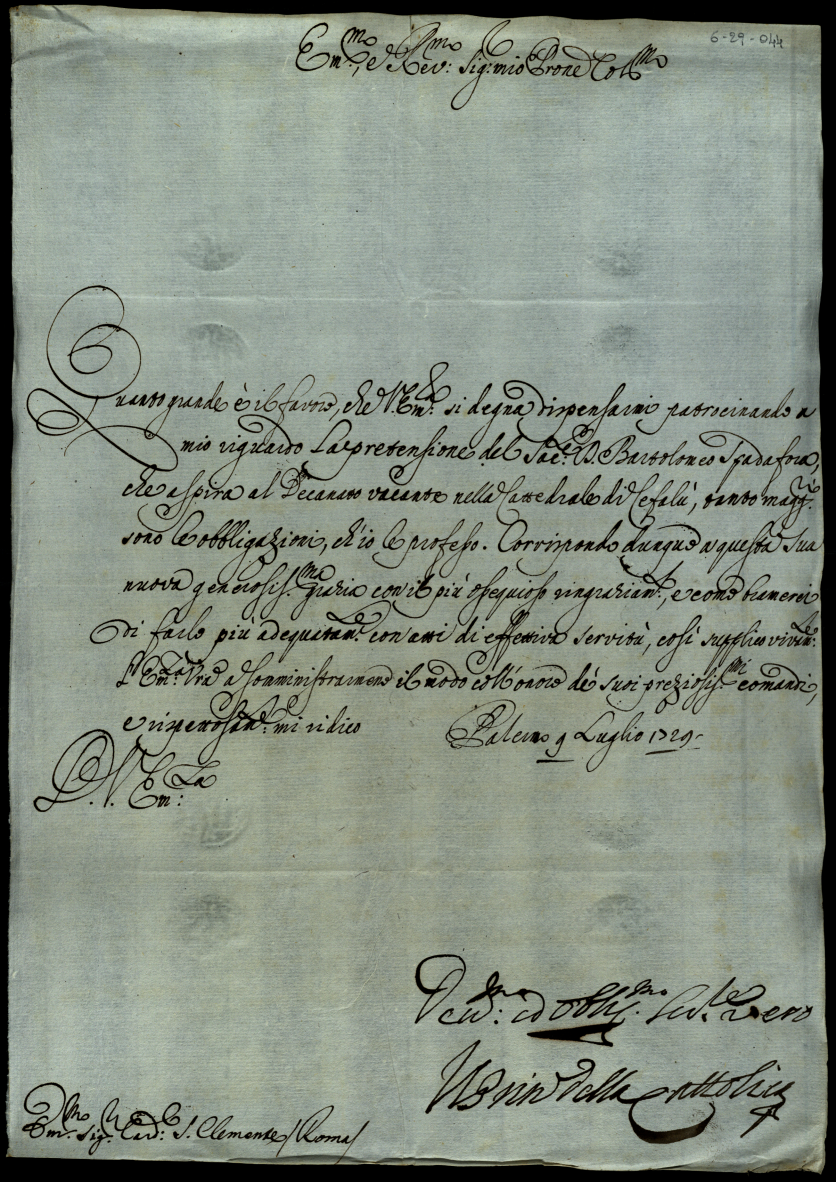 6-29-044
Em:mo, e Rev:mo Sig:r mio Prone Colmo
Quanto grande è il favore, che V. Em:za si degna dispensarmi patrocinando a
mio riguardo la pretensione del Sac:te D. Bartolomeo Spadafora,
che aspira al Decanato vacante nella Cattedrale di Cefalù, tanto magg:ri
sono le obbligazioni, ch'io le professo. Corrispondo dunque a questa sua
nuova generosis:ma grazia con il più ossequioso ringraziam:to, e come bramerei
di farlo più adequatam:te con atti di effettiva servitù, così supplico vivam:te
l'Em:za Vra a somministrarmene il modo coll'onore de' suoi preziosis:mi comandi,
e rispettosam:te mi ridico
Palermo 9 Luglio 1729
D. V. Em:za
Dev:mo ed obbli:mo Ser:re vero
Il Prin della Cattolica
Em:mo Sig:r Card:le S. Clemente /Roma/